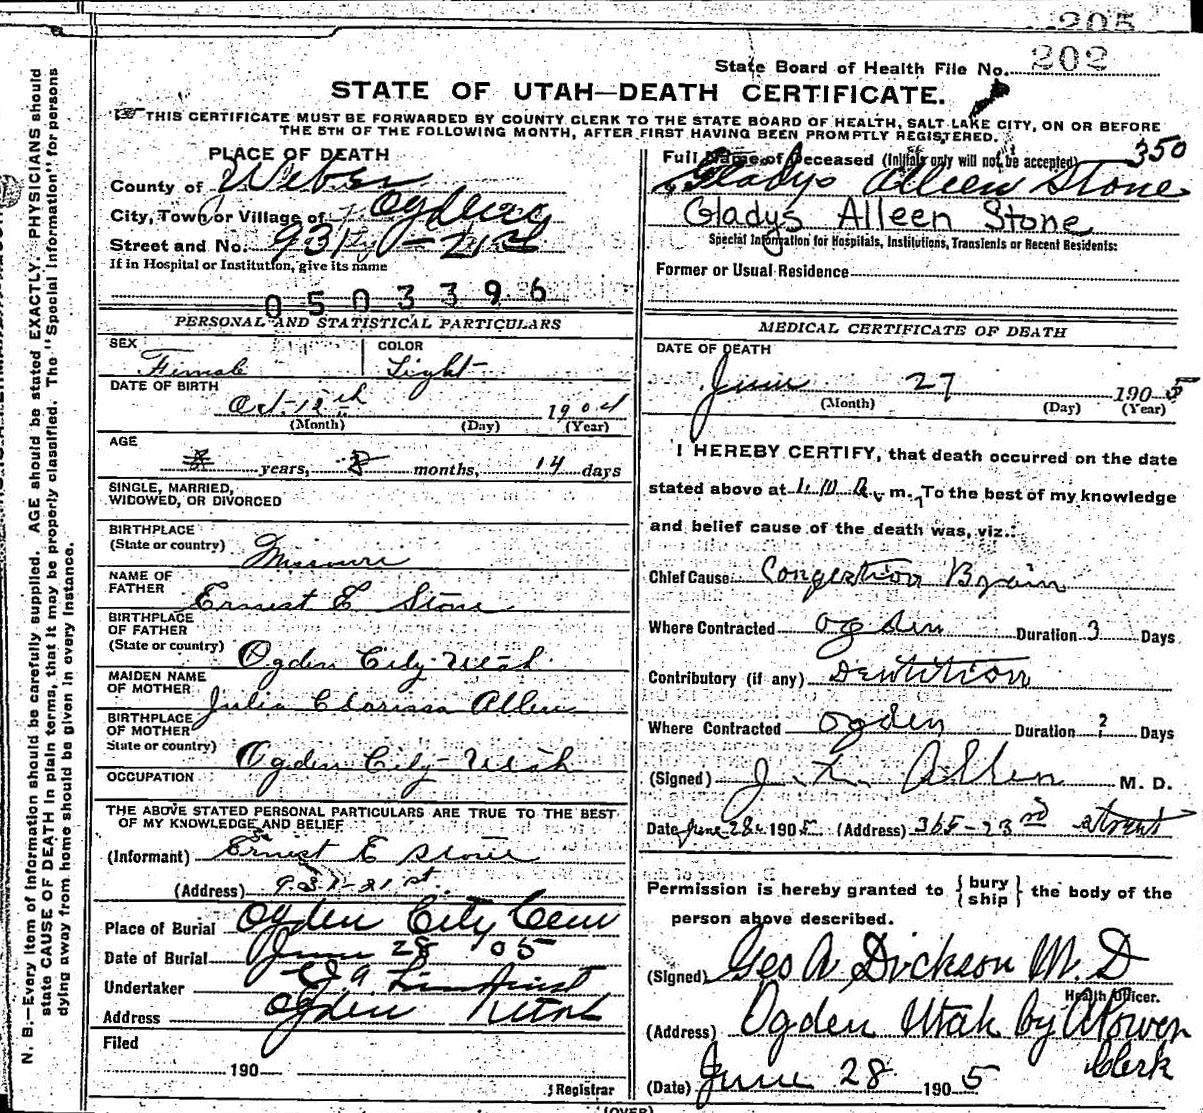 205
State Board of Health File No. 202
STATE OF UTAH—DEATH CERTIFICATE.
THIS CERTIFICATE MUST BE FORWARDED BY COUNTY CLERK TO THE STATE BOARD OF HEALTH, SALT LAKE CITY, ON OR BEFORE
THE 5TH OF THE FOLLOWING MONTH, AFTER FIRST HAVING BEEN PROMPTLY REGISTERED.
PLACE OF DEATH
County of Weber
City, Town or Village of Ogden
Street and No. 931 - 21st
If in Hospital or Institution, give its name
0503396
Full Name of Deceased (Initials only will not be accepted) 350
Gladys Alleen Stone
Gladys Alleen Stone
Special Information for Hospitals, Institutions, Transients or Recent Residents:
Former or Usual Residence
PERSONAL AND STATISTICAL PARTICULARS
SEX Female COLOR Light
DATE OF BIRTH
Oct-12th 1904
(Month) (Day) (Year)
AGE
years, 8 months, 14 days
SINGLE, MARRIED,
WIDOWED, OR DIVORCED
BIRTHPLACE
(State or country) Missouri
NAME OF
FATHER Ernest E Stone
BIRTHPLACE
OF FATHER
(State or country) Ogden City Utah
MAIDEN NAME
OF MOTHER Julia Clarissa Allen
BIRTHPLACE
OF MOTHER
State or country) Ogden City Utah
OCCUPATION
THE ABOVE STATED PERSONAL PARTICULARS ARE TRUE TO THE BEST
OF MY KNOWLEDGE AND BELIEF
(Informant) Ernest E Stone
(Address) 931-21st.
Place of Burial Ogden City Cem
Date of Burial June 28 05
Undertaker
Address Ogden Utah
Filed
190
Registrar
MEDICAL CERTIFICATE OF DEATH
DATE OF DEATH
June 27 1905
(Month) (Day) (Year)
I HEREBY CERTIFY, that death occurred on the date
stated above at 1.10 A. m. To the best of my knowledge
and belief cause of the death was, viz.:
Chief Cause: Congestion Brain
Where Contracted Ogden Duration 3 Days
Contributory (if any) Dentition
Where Contracted Ogden Duration ? Days
(Signed) Allen M. D.
Date June 28 1905 (Address) 365-23rd street
Permission is hereby granted to { bury ship } the body of the
person above described.
(Signed) Geo A Dickson M.D
Health Officer.
(Address) Ogden Utah by
Clerk
(Date) June 28 1905
(OVER)
N. B.—Every item of information should be carefully supplied. AGE should be stated EXACTLY. PHYSICIANS should
state CAUSE OF DEATH in plain terms, that it may be properly classified. The "Special Information" for persons
dying away from home should be given in every instance.